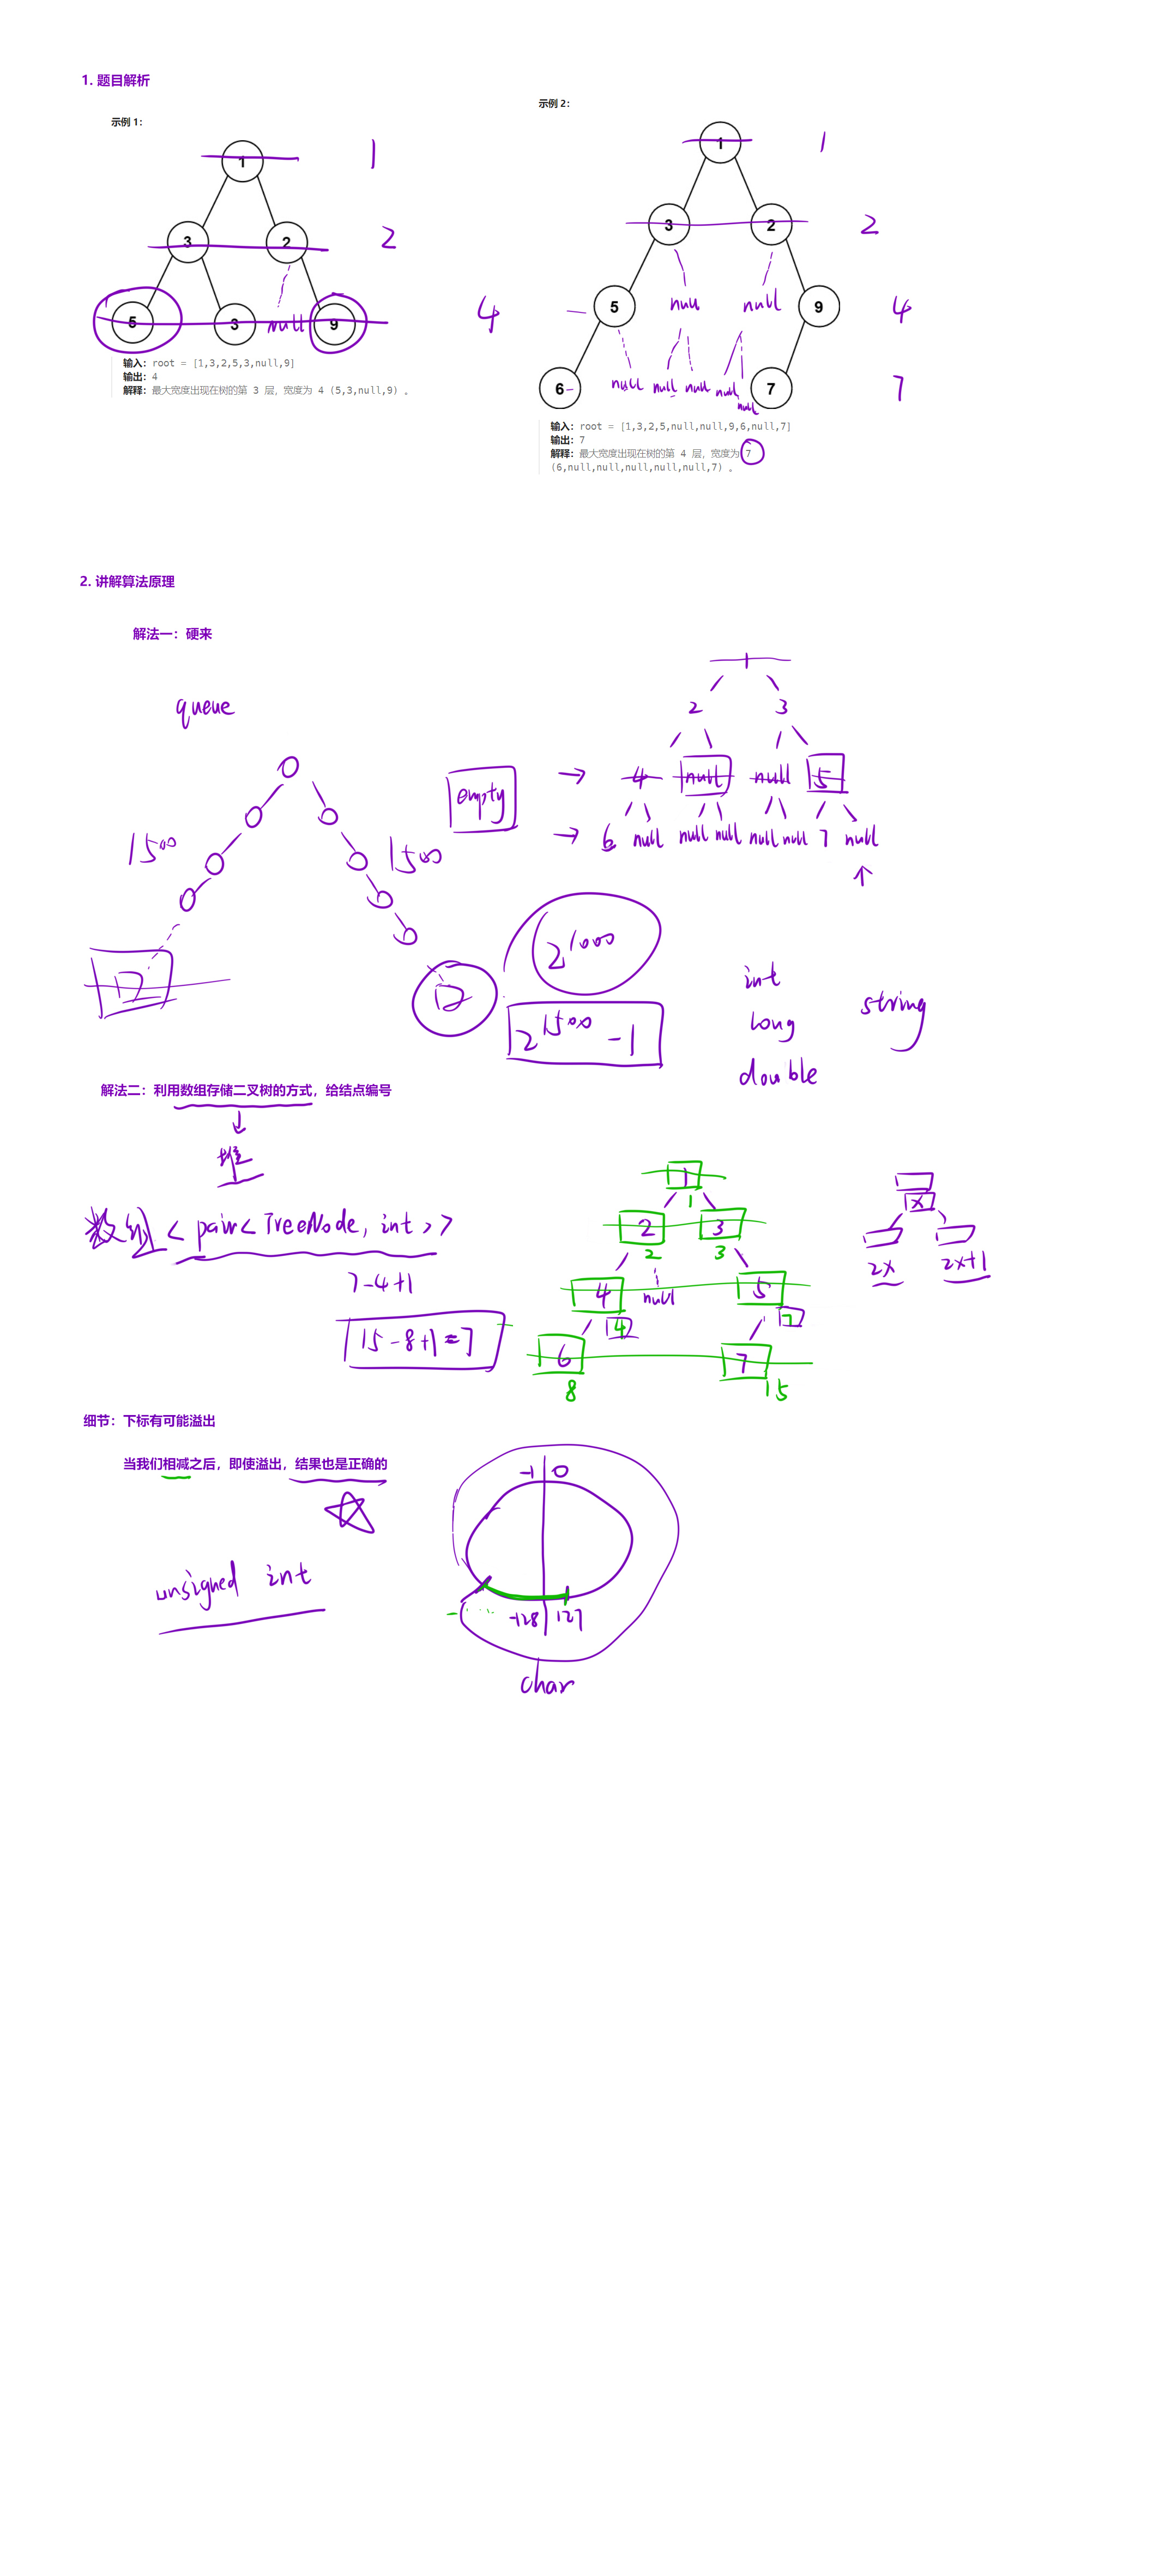 1. 题目解析
示例 1：
1
1
3
2
2
5
3
null
9
输入：root = [1,3,2,5,3,null,9]
输出：4
解释：最大宽度出现在树的第 3 层，宽度为 4 (5,3,null,9) 。
示例 2：
1
1
3
2
2
4
5
null
null
9
4
6
null
null
null
null
null
7
7
输入：root = [1,3,2,5,null,null,9,6,null,7]
输出：7
解释：最大宽度出现在树的第 4 层，宽度为 7
(6,null,null,null,null,null,7) 。
2. 讲解算法原理
解法一：硬来
queue
1500
1500
empty
1
2 3
→ 4 null null 5
→ 6 null null null null null 7 null
2^1000
2^1500 - 1
int
long
double
string
解法二：利用数组存储二叉树的方式，给结点编号
堆
数组 < pair< TreeNode, int > >
7-4+1
15-8+1=7
1
1
2 3
2 3
4 null 5
4 7
6 7
8 15
x
2x 2x+1
细节：下标有可能溢出
当我们相减之后，即使溢出，结果也是正确的
unsigned int
-1 0
-128 127
char